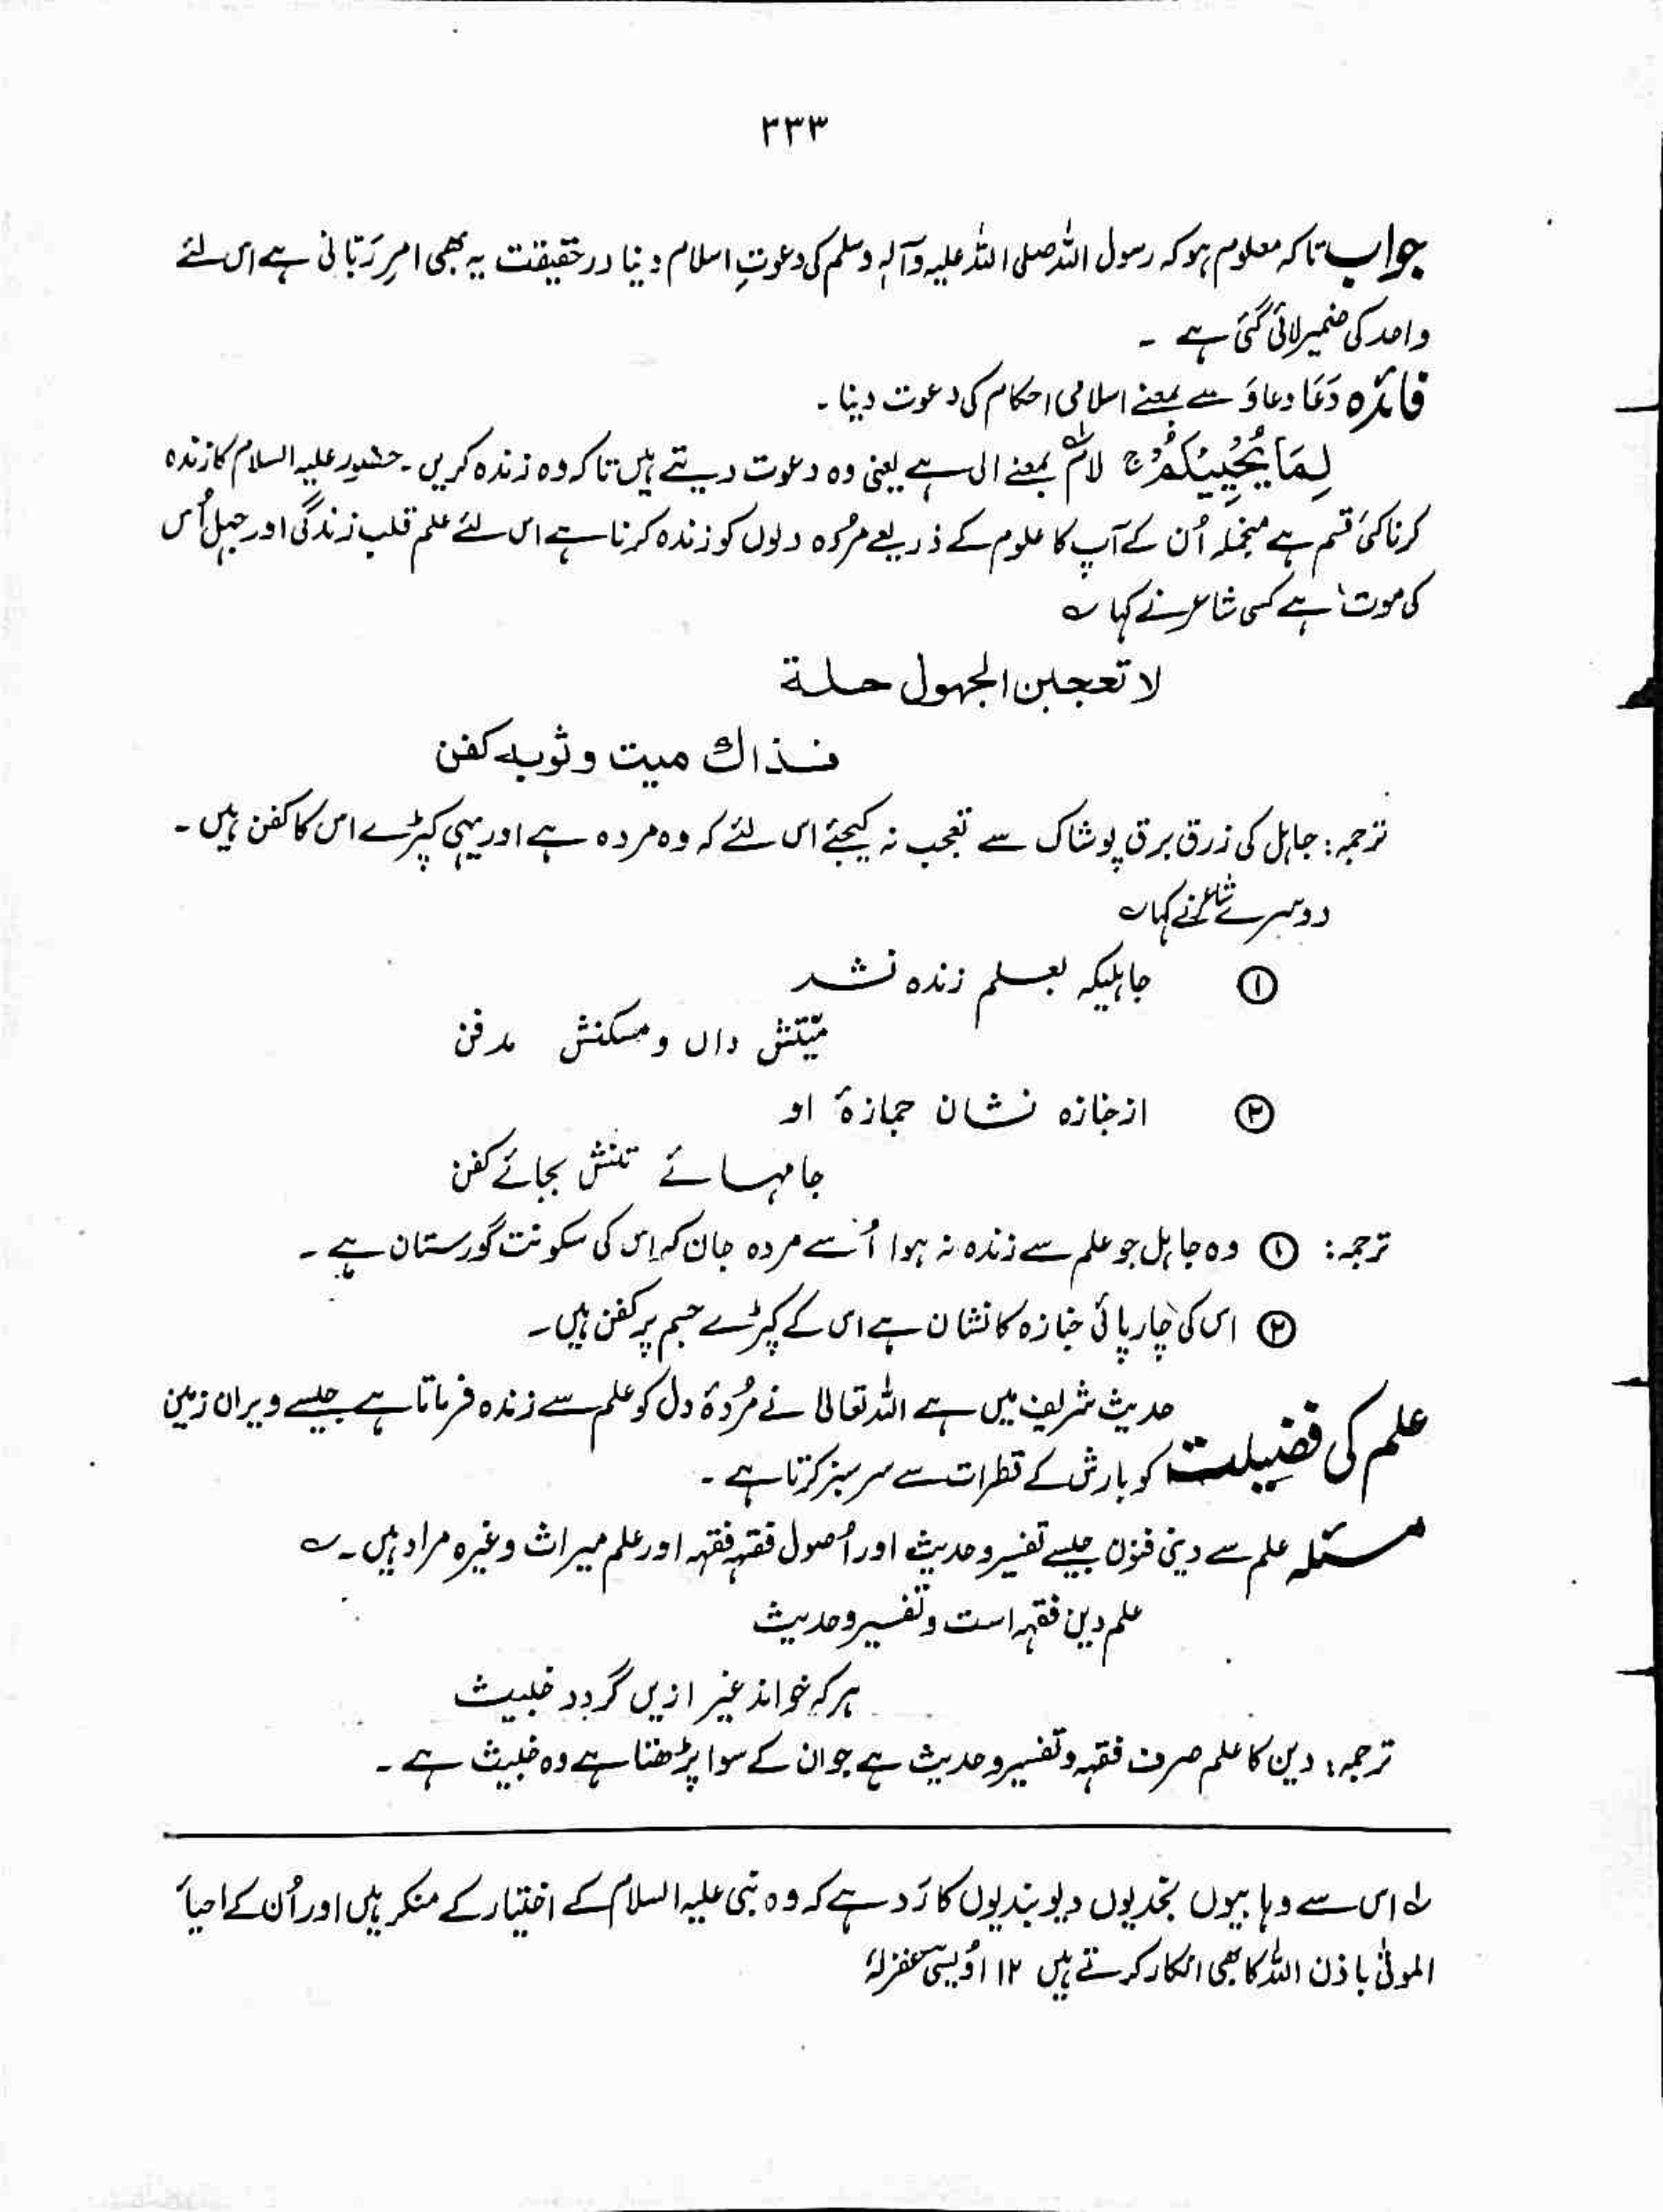 ۲۳۳
جواب تاکہ معلوم ہو کہ رسول اللہ صلی اللہ علیہ وآلہٖ وسلم کی دعوتِ اسلام دینا درحقیقت یہ بھی امرِ رَبّانی ہے اس لئے
واحد کی ضمیر لائی گئی ہے ۔
فائدہ دَعَا دعاوَ سے بمعنے اسلامی احکام کی دعوت دینا ۔
لِمَا یُحْیِیْکُمْ ج لام بمعنے الی ہے یعنی وہ دعوت دیتے ہیں تاکہ وہ زندہ کریں ۔ حضور علیہ السلام کا زندہ
کرنا کئی قسم ہے منجملہ اُن کے آپ کا علوم کے ذریعے مُردہ دلوں کو زندہ کرنا ہے اس لئے علم قلب زندگی اور جہل اُس
کی موت ہے کسی شاعر نے کہا ؎
لا تعجبن الجهول حلة
فذاك ميت وثوبه كفن
ترجمہ: جاہل کی زرق برق پوشاک سے تعجب نہ کیجئے اس لئے کہ وہ مردہ ہے اور یہی کپڑے اس کا کفن ہیں ۔
دوسرے شاعر نے کہا ؎
① جاہلیکہ بعلم زندہ نشد
میّتش داں و مسکنش مدفن
② از جنازہ نشان جمازۂ او
جامہائے تنش بجائے کفن
ترجمہ: ① وہ جاہل جو علم سے زندہ نہ ہوا اُسے مردہ جان کہ اس کی سکونت گورستان ہے ۔
② اس کی چارپائی جنازہ کا نشان ہے اس کے کپڑے جسم پر کفن ہیں ۔
علم کی فضیلت حدیث شریف میں ہے اللہ تعالیٰ نے مُردۂ دل کو علم سے زندہ فرماتا ہے جیسے ویران زمین
کو بارش کے قطرات سے سرسبز کرتا ہے ۔
مسئلہ علم سے دینی فنون جیسے تفسیر و حدیث اور اُصول فقہ فقہ اور علم میراث وغیرہ مراد ہیں ۔ ؎
علم دین فقہ است و تفسیر و حدیث
ہر کہ خواند غیر ازیں گردد خبیث
ترجمہ: دین کا علم صرف فقہ و تفسیر و حدیث ہے جو ان کے سوا پڑھتا ہے وہ خبیث ہے ۔
لہ اس سے وہابیوں نجدیوں دیوبندیوں کا رَد ہے کہ وہ نبی علیہ السلام کے اختیار کے منکر ہیں اور اُن کے احیأ
الموتٰی باذن اللہ کا بھی انکار کرتے ہیں ۱۲ اُویسی غفرلہٗ